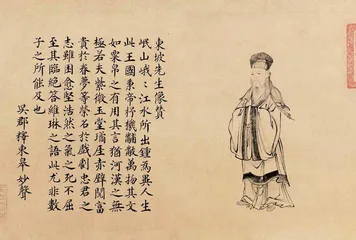 東坡先生像贊
岷山峨峨江水所出鍾為異人生
此王國秉帝杼機黼黻萬物其文
如粟帛之有用其言猶河漢之無
極若夫紫微玉堂瘴厓赤壁閱富
貴於春夢等榮名於戲劇忠君之
志雖困愈堅浩然之氣之死不屈
至其臨絕答維琳之語此尤非數
子之所能及也
吳郡釋東皋妙聲